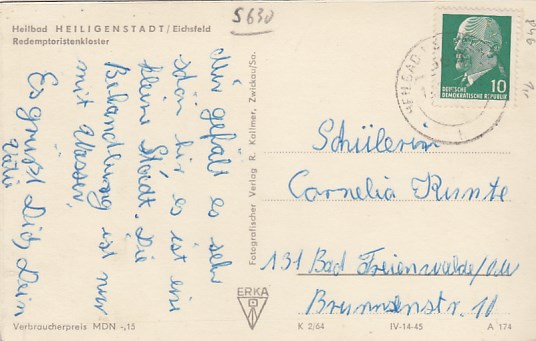 Heilbad HEILIGENSTADT / Eichsfeld
Redemptoristenkloster
5630
Mir gefält es sehr
schön hir, es ist eine
kleine Stadt. Die
Behandlung ist nur
mit Wasser.
Es grüßt Dich, Dein
Fotografischer Verlag R. Kallmer, Zwickau/Sa.
ERKA
DEUTSCHE
DEMOKRATISCHE REPUBLIK
10
HEILBAD
Schülerin
Cornelia Kunte
131 Bad Freienwalde/
Brunnenstr. 10
Verbraucherpreis MDN -,15
K 2/64 IV-14-45 A 174